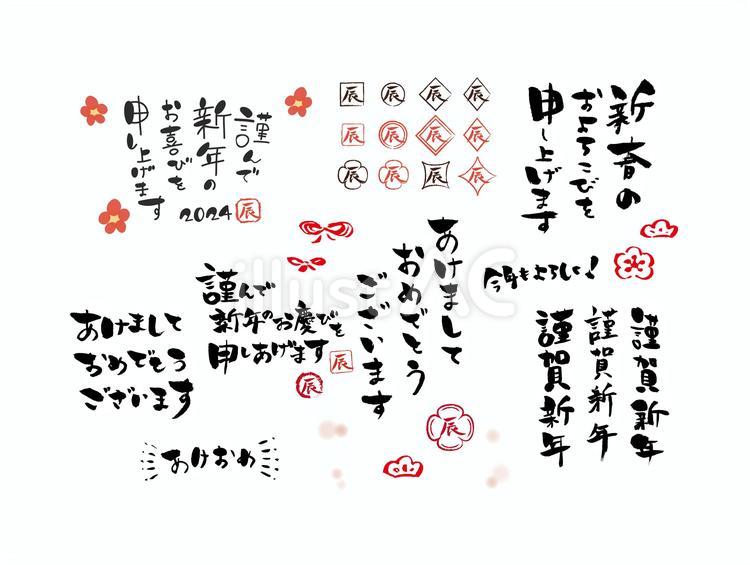 謹んで
新年の
お喜びを
申し上げます
2024 辰
辰 辰 辰 辰
辰 辰 辰 辰
辰 辰 辰 辰
新春の
およろこびを
申し上げます
あけまして
おめでとう
ございます
今年もよろしく!
謹んで
新年のお慶びを
申しあげます
辰
辰
あけまして
おめでとう
ございます
辰
謹賀新年
謹賀新年
謹賀新年
あけおめ
illustAC